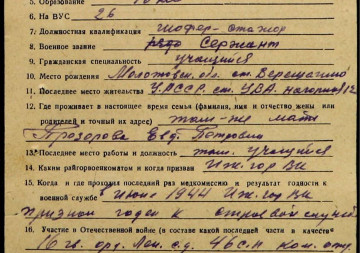 5. Образование
6. На ВУС 26
7. Должностная квалификация шофер-стажер
8. Военное звание Сержант
9. Гражданская специальность учащийся
10. Место рождения Молотовск. обл. ст. Верещагино
11. Последнее местожительства УАССР. ст. УВА.
12. Где проживает в настоящее время семья (фамилия, имя и отчество жены или
родителей и точный их адрес) там-же мать
Прозорова Евд. Петровна
13. Последнее место работы и должность учащийся
14. Каким райгорвоенкоматом и когда призван Иж. гор ВК
15. Когда и где проходил последний раз медкомиссию и результат годности к
военной службе июнь 1944 Иж. гор ВК
признан годен к строевой службе
16. Участие в Отечественной войне (в составе какой последней части в качестве
16 гв. орд. Лен. с.д. 46 с.п ком. отд.